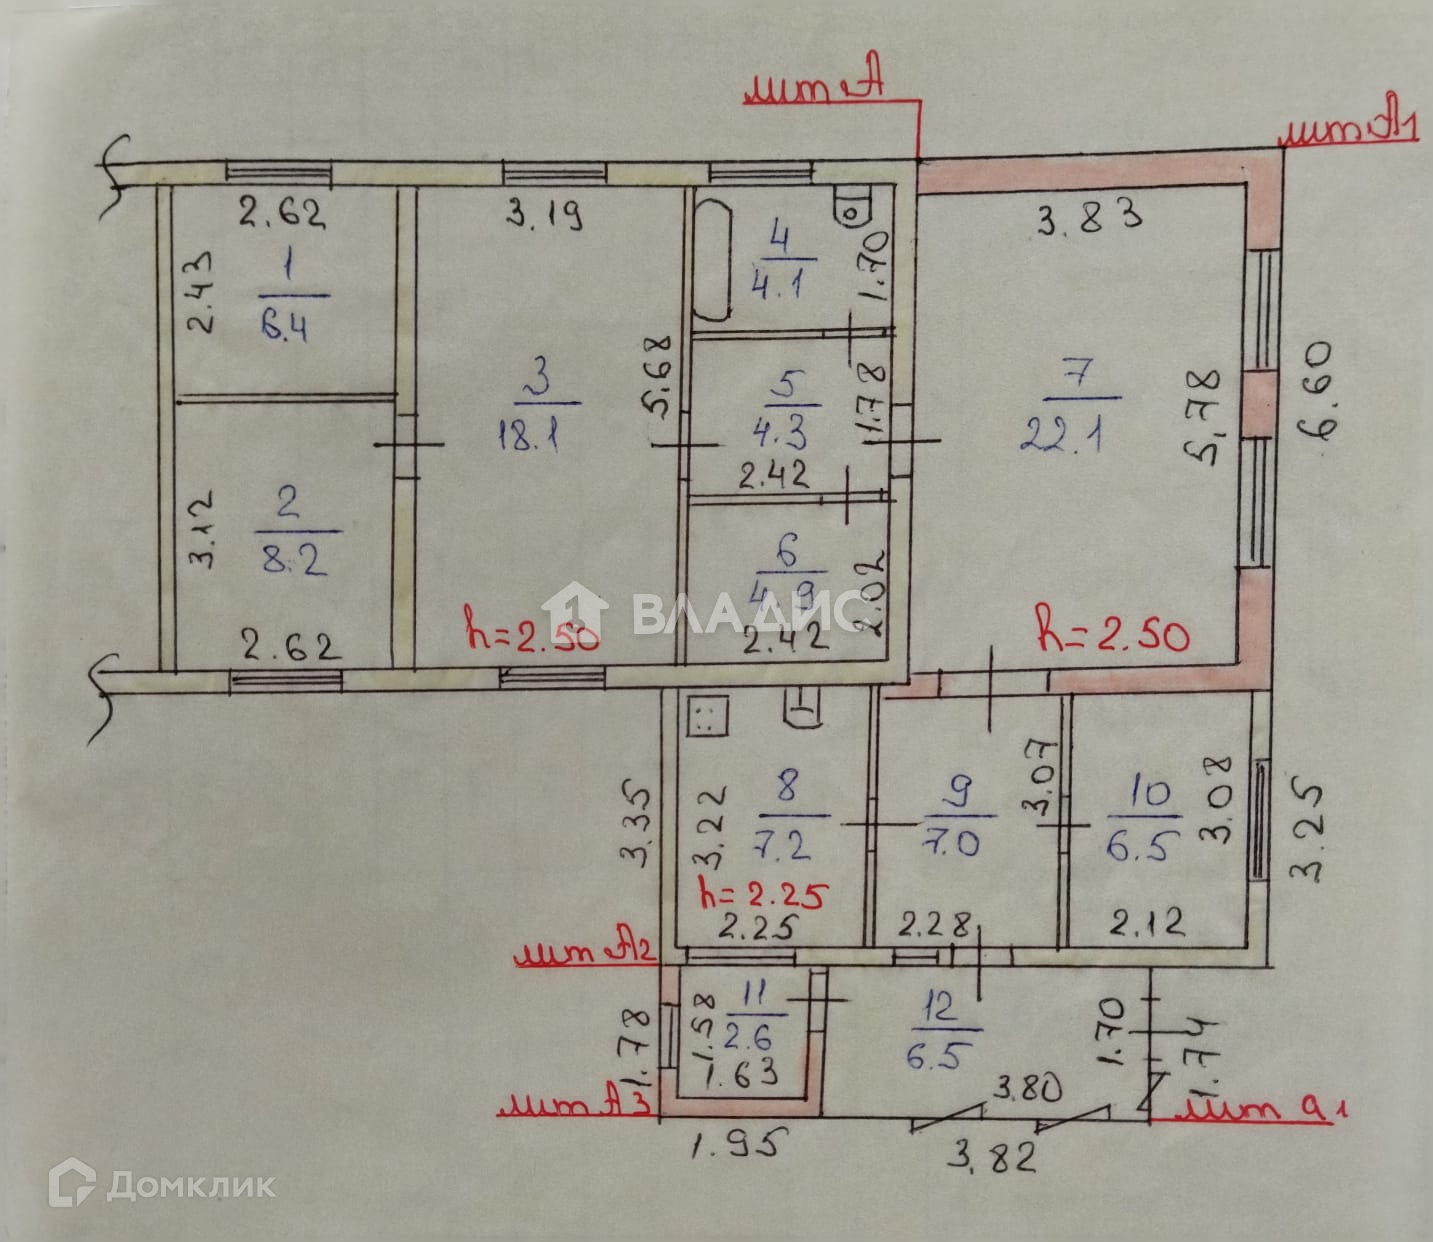 лит А
лит А1
2.62
3.19
3.83
2.43
1
6.4
4
4.1
1.70
3
18.1
5.68
5
4.3
1.78
2.42
7
22.1
5.78
6.60
3.12
2
8.2
6
4.9
2.02
2.42
2.62
h=2.50
h=2.50
ВЛАДИС
3.35
3.22
8
7.2
h=2.25
2.25
9
7.0
3.07
2.28
10
6.5
3.08
2.12
3.25
лит А2
1.78
1.58
11
2.6
1.63
12
6.5
1.70
1.74
3.80
лит А3
лит а1
1.95
3.82
Домклик